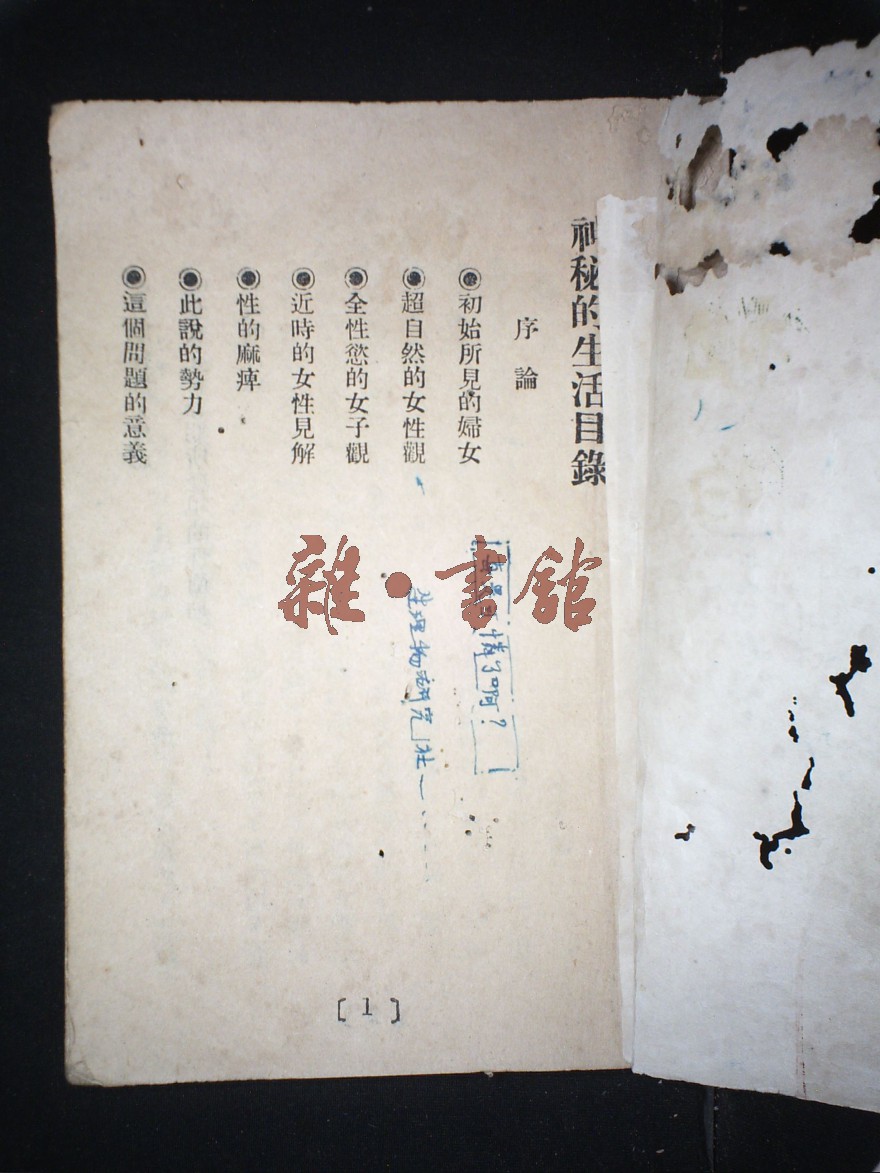 神秘的生活目錄
序論
◉初始所見的婦女
◉超自然的女性觀
◉全性慾的女子觀
◉近時的女性見解
◉性的麻痺
◉此說的勢力
◉這個問題的意義
情了啊？
生理物研究社一
雜·書館
[1]